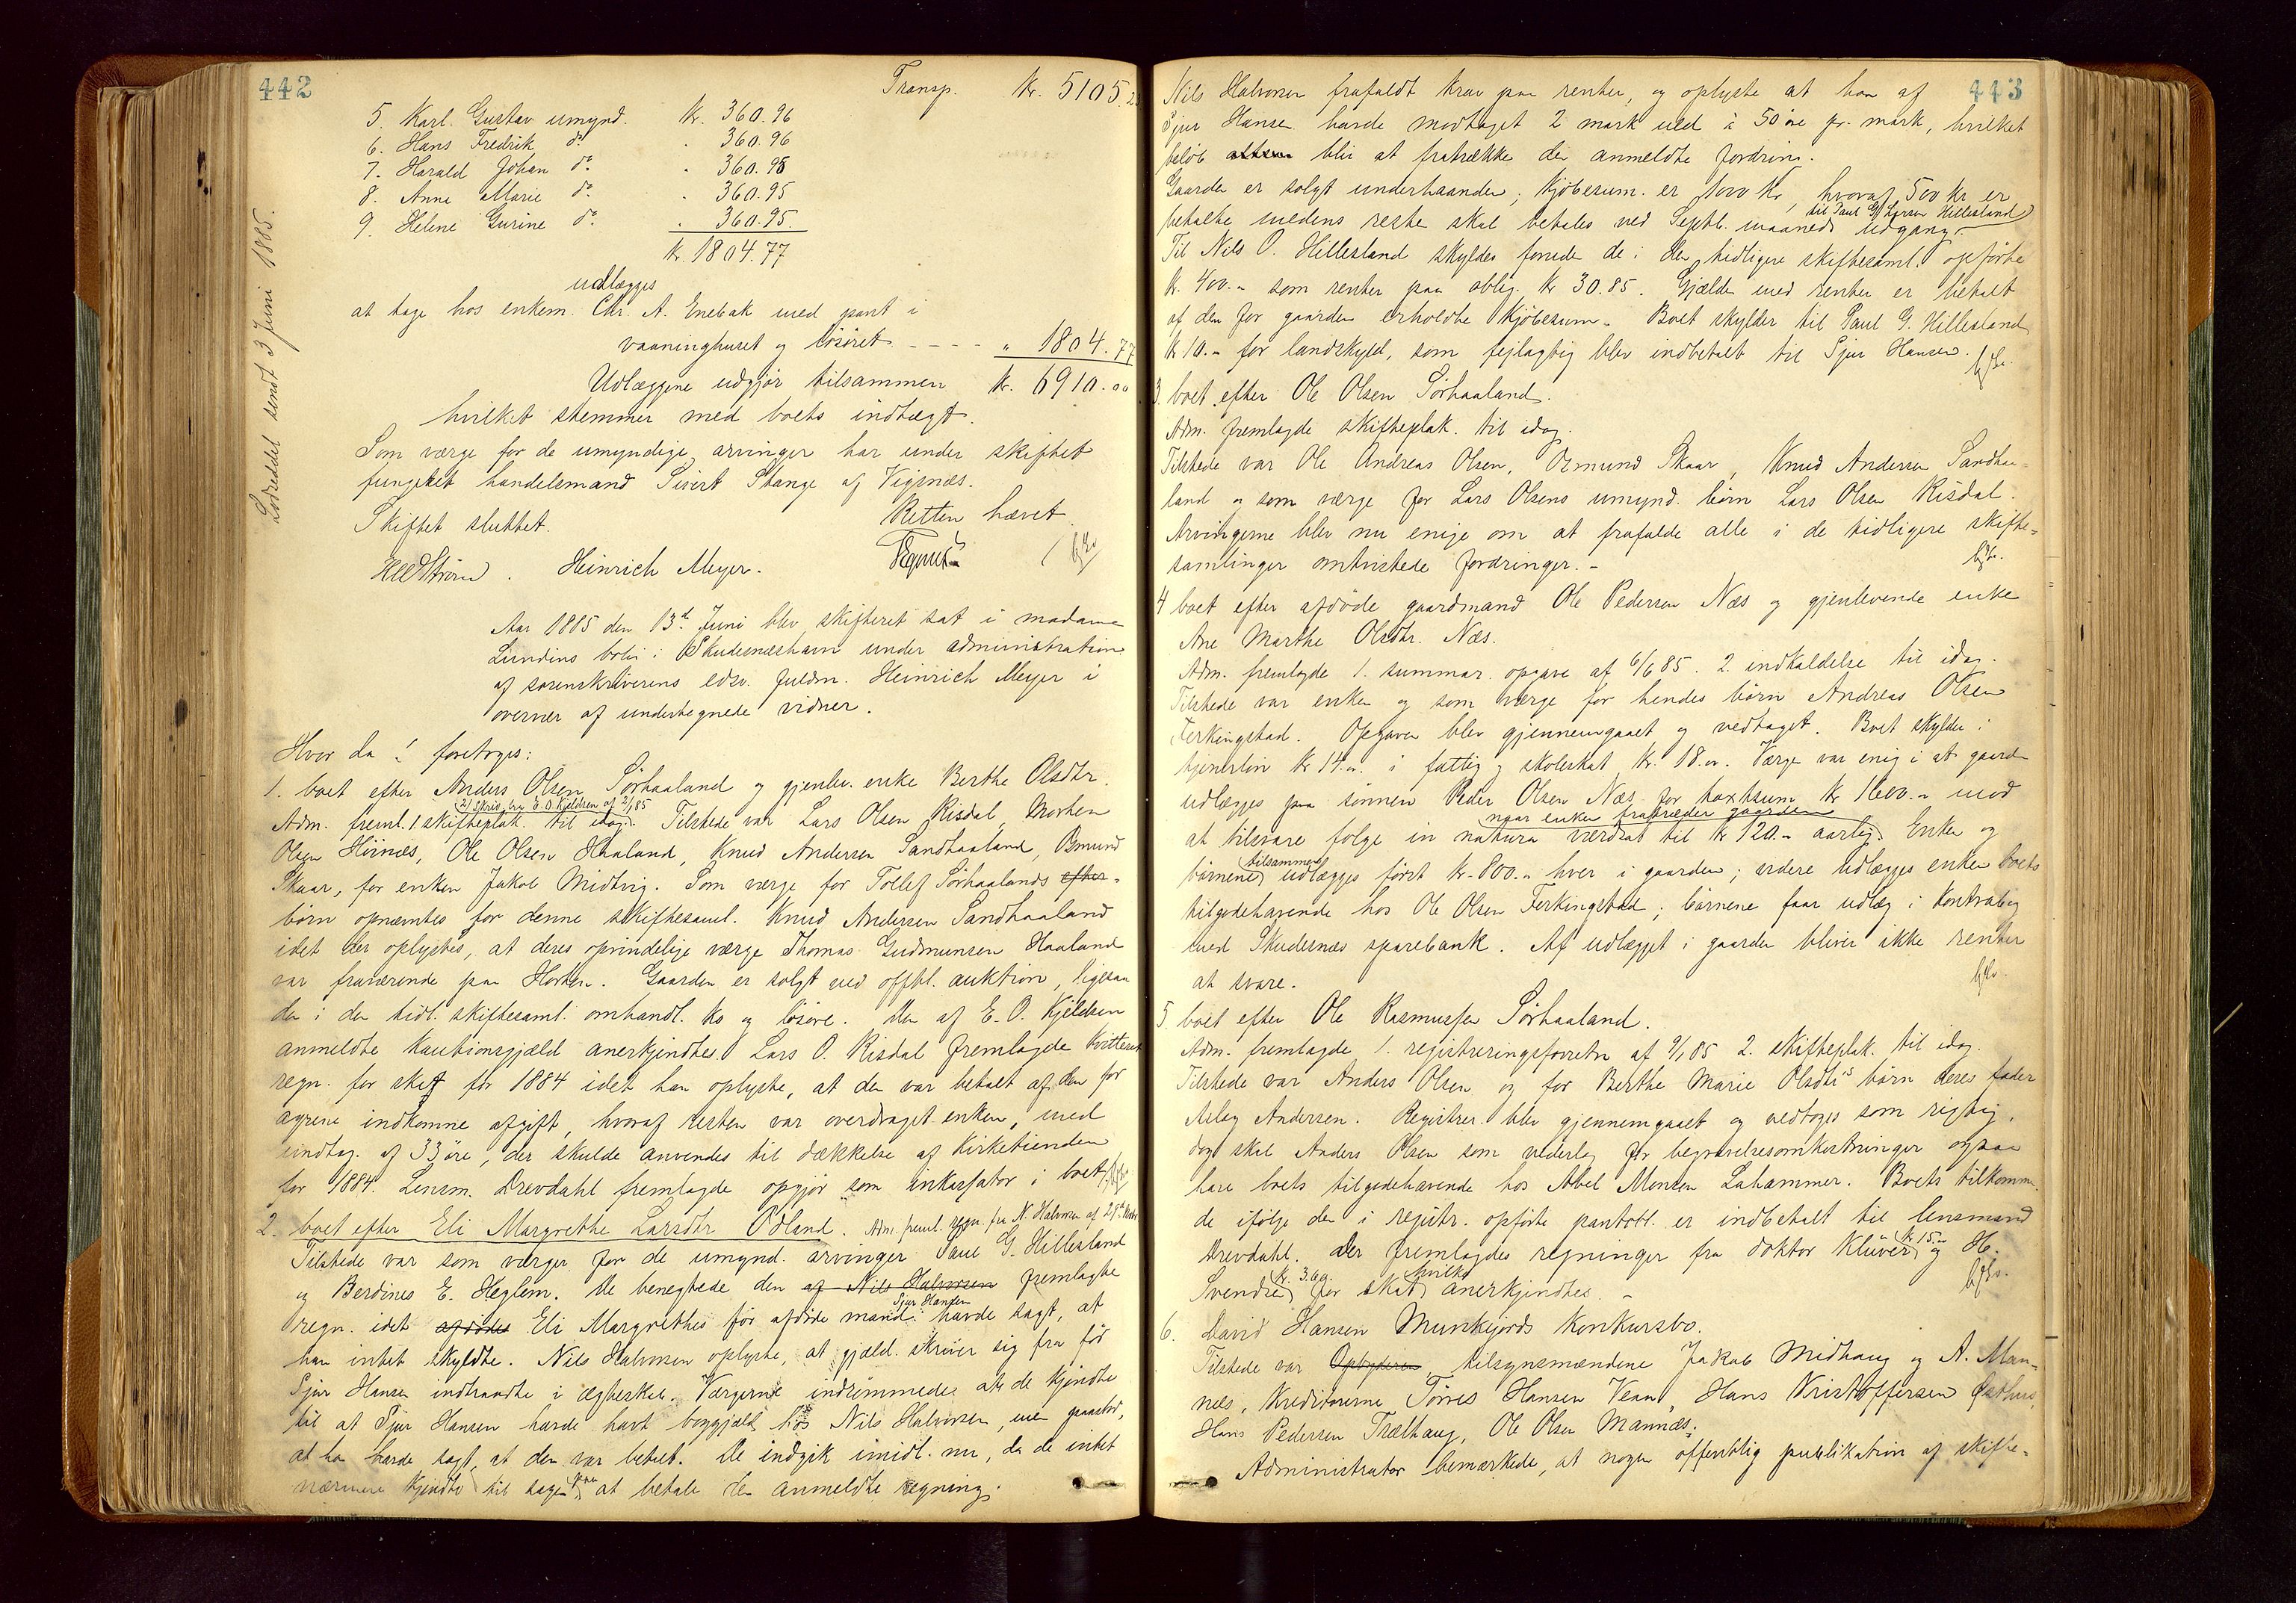 442
Transp. Kr. 5105.23
5. Karl Gustav umynd. Kr. 360.96
6. Hans Fredrik do " 360.96
7. Harald Johan do " 360.95
8. Anne Marie do " 360.95
9. Helene Gurine do " 360.95
Kr. 1804.77
udlægges
at tage hos enkem. Chr. A. Enebak med pant i
vaaninghuset og løsøret - - - - " 1804.77
Udlæggene udgjør tilsammen Kr. 6910.00
hvilket stemmer med boets indtægt.
Som værge for de umyndige arvinger har under skiftet
fungeret handelsmand Sivert Stange af Vigsnæs.
Skiftet sluttet. Retten hævet.
Heinrich Meyer.
Lodseddel sendt 3 Juni 1885.
Aar 1885 den 13de Juni blev skifteret sat i madame
Lundins bolig i Skudesnæshavn under administration
af sorenskriverens edsv. fuldm. Heinrich Meyer i
overvær af undertegnede vidner.
Hvor da! foretoges:
1. boet efter Anders Olsen Sørhaaland og gjenlev. enke Berthe Olsdtr.
2) skriv. fra E. O. Kjeldsen af 2/1 85
Adm. freml. 1. skifteplak. til idag. Tilstede var Lars Olsen Risdal, Morten
Olsen Høinæs, Ole Olsen Haaland, Knud Andersen Sandhaaland, Osmund
Skaar, for enken Jakob Midtvig. Som værge for Tollef Sørhaalands efter-
børn opnævntes for denne skiftesaml. Knud Andersen Sandhaaland
idet der oplystes, at deres oprindelige værge Thomas Gudmunsen Haaland
var fraværende paa Horten. Gaarden er solgt ved offtl. auktion, ligesaa
den i den tidl. skiftesaml. omhandl. ko og løsøre. Den af E. O. Kjeldsen
anmeldte kautionsgjæld anerkjendtes. Lars O. Risdal fremlagde kvitteret
regn. for skat for 1884 idet han oplyste, at den var betalt af den for
agrene indkomne afgift, hvoraf resten var overdraget enken, med
undtag. af 33 øre, der skulde anvendes til dækkelse af Kirketienden
for 1884. Lensm. Drevdahl fremlagde opgjør som inkassator i boet.
2. boet efter Eli Margrethe Larsdtr Ødland. Adm. freml. regn. fra N. Halvorsen af 28de
Tilstede var som værger for de umynd. arvinger Paul G. Hillesland
og Berdines E. Heglem. De benegtede den af Nils Halvorsen fremlagte
Sjur Hansen
regn. idet afdøde Eli Margrethes før afdøde mand havde sagt, at
han intet skyldte. Nils Halvorsen oplyste, at gjæld. skriver sig fra før
Sjur Hansen indtraadte i ægteskab. Værgerne indrømmede at de kjendte
til at Sjur Hansen havde havt boggjæld hos Nils Halvorsen, men paastod,
at han havde sagt, at den var betalt. De indgik imidl. nu, da de intet
nærmere kjendte til sagen paa at betale den anmeldte regning.
443
Nils Halvorsen frafaldt krav paa renter, og oplyste at han af
Sjur Hansen havde modtaget 2 mark uld à 50 øre pr. mark, hvilket
beløb altsaa blir at fratrække den anmeldte fordring.
Gaarden er solgt underhaanden; kjøbesum. er 1000 Kr, hvoraf 500 kr er
til Paul G. Larsen Hillesland
betalte medens resten skal betales ved Septbr. maaneds udgang.
Til Nils O. Hillesland skyldes foruden de i den tidligere skiftesaml. opførte
Kr. 400.- som renter paa oblig. Kr 30.85. Gjælden med renter er betalt
af den for gaarden erholdte kjøbesum. Boet skylder til Paul G. Hillesland
Kr 10.- for landskyld, som fejlagtig blev indbetalt til Sjur Hansen.
3. boet efter Ole Olsen Sørhaaland.
Adm. fremlagde skifteplak. til idag.
Tilstede var Ole Andreas Olsen, Osmund Skaar, Knud Andersen Sandhaa-
land og som værge for Lars Olsens umynd. børn Lars Olsen Risdal.
Arvingerne blev nu enige om at frafalde alle i de tidligere skifte-
samlinger omtvistede fordringer. -
4 boet efter afdøde gaardmand Ole Pedersen Næs og gjenlevende enke
Ane Marthe Olsdtr. Næs.
Adm. fremlagde 1. summar. opgave af 6/6 85. 2. indkaldelse til idag.
Tilstede var enken og som værge for hendes børn Andreas Olsen
Ferkingstad. Opgaven blev gjennemgaaet og vedtaget. Boet skylder i
tjenerløn Kr 14.00. i fattig og skoleskat Kr. 18.00. Værge var enig i at gaarden
udlægges paa sønnen Peder Olsen Næs for taxtsum Kr 1600.- mod
naar enken fratræder gaarden
at tilsvare følge in natura værdsat til Kr 120.- aarlig. Enken og
tilsammen
børnene udlægges først Kr. 800.- hver i gaarden; videre udlægges enken boets
tilgodehavende hos Ole Olsen Ferkingstad; børnene faar udlæg i Kontrabog
med Skudesnæs sparebank. Af udlægget i gaarden bliver ikke renter
at svare.
5. boet efter Ole Rasmussen Sørhaaland.
Adm. fremlagde 1. registreringsforretn af 9/1 85 2. skifteplak. til idag.
Tilstede var Anders Olsen og for Berthe Marie Olsdtrs børn deres fader
Asley Andersen. Registrer. blev gjennemgaaet og vedtoges som rigtig,
dog skal Anders Olsen som vederlag for begravelsesomkostninger ogsaa
have boets tilgodehavende hos Abel Monsen Lahammer. Boets tilkommen-
de ifølge den i registr. opførte pantobl. er indbetalt til lensmand
Kr 15.00
Drevdahl. Der fremlagdes regninger fra doktor Klüver og H.
Kr. 3.60. hvilke
Svendsen for skat anerkjendtes. -
6. David Hansen Munkejords Konkursbo.
Tilstede var Opbyderen, tilsynsmændene Jakob Midhaug og A. Man-
næs, kreditorerne Tørres Hansen Vean, Hans Kristoffersen Østhus,
Hans Pedersen Trælhaug, Ole Olsen Mannæs.
Administrator bemærkede, at nogen offentlig publikation af skifte-